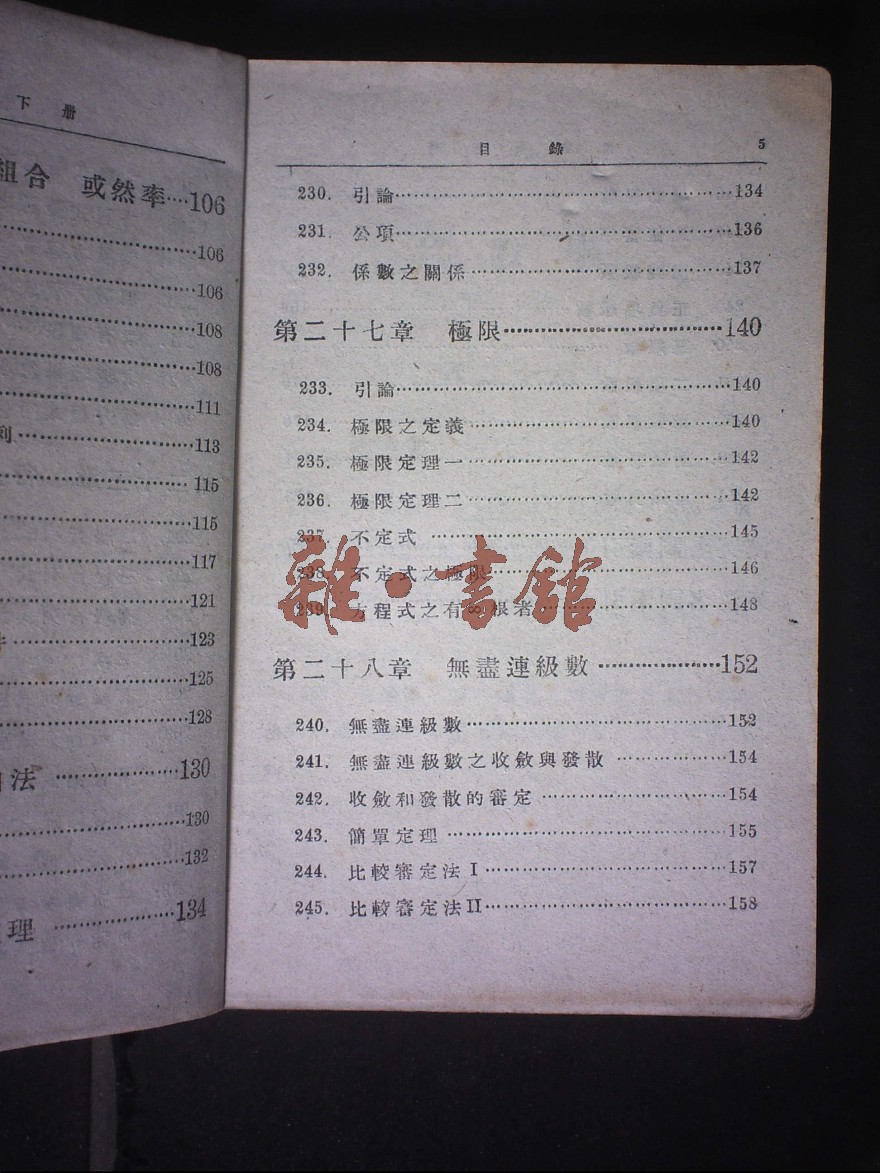 下 册
組合 或然率…106
…106
…106
…108
…108
…111
…113
…115
…115
…117
…121
…123
…125
…128
法…130
…130
…132
理…134
目 錄 5
230. 引論…134
231. 公項…136
232. 係數之關係…137
第二十七章 極限…140
233. 引論…140
234. 極限之定義…140
235. 極限定理一…142
236. 極限定理二…142
237. 不定式…145
238. 不定式之極限…146
239. 方程式之有∞根者…148
雜·書館
第二十八章 無盡連級數…152
240. 無盡連級數…152
241. 無盡連級數之收斂與發散…154
242. 收斂和發散的審定…154
243. 簡單定理…155
244. 比較審定法 I…157
245. 比較審定法 II…158